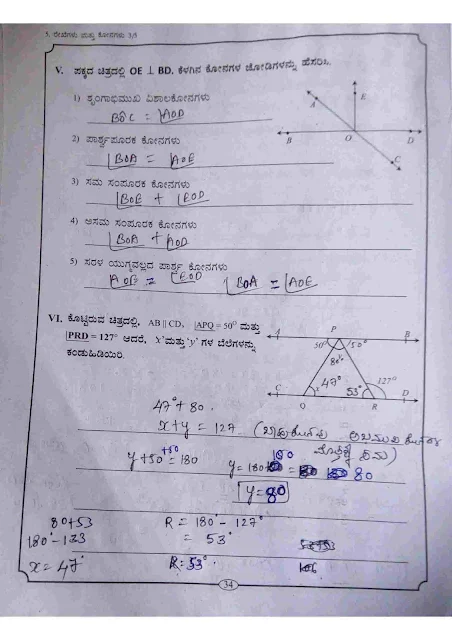 5. ರೇಖೆಗಳು ಮತ್ತು ಕೋನಗಳು 3/5
V. ಪಕ್ಕದ ಚಿತ್ರದಲ್ಲಿ OE ⊥ BD. ಕೆಳಗಿನ ಕೋನಗಳ ಜೋಡಿಗಳನ್ನು ಹೆಸರಿಸಿ.
1) ಶೃಂಗಾಭಿಮುಖ ವಿಶಾಲಕೋನಗಳು
BOC = AOD
2) ಪಾರ್ಶ್ವಪೂರಕ ಕೋನಗಳು
BOA = AOE
3) ಸಮ ಸಂಪೂರಕ ಕೋನಗಳು
BOE + EOD
4) ಅಸಮ ಸಂಪೂರಕ ಕೋನಗಳು
BOA + AOD
5) ಸರಳ ಯುಗ್ಮವಲ್ಲದ ಪಾರ್ಶ್ವ ಕೋನಗಳು
AOE = EOD BOA = AOE
A E
B O D
C
VI. ಕೊಟ್ಟಿರುವ ಚಿತ್ರದಲ್ಲಿ, AB || CD, |APQ = 50° ಮತ್ತು
|PRD = 127° ಆದರೆ, 'x' ಮತ್ತು 'y' ಗಳ ಬೆಲೆಗಳನ್ನು
ಕಂಡುಹಿಡಿಯಿರಿ.
A P B
50° 50°
80
47° 53° 127°
C x D
Q R
47° + 80
x + y = 127
y + 50 +50 = 180
y = 180 - 100 = 80
y = 80
80 + 53 R = 180° - 127°
180° - 133 = 53°
x = 47° R = 53°
34